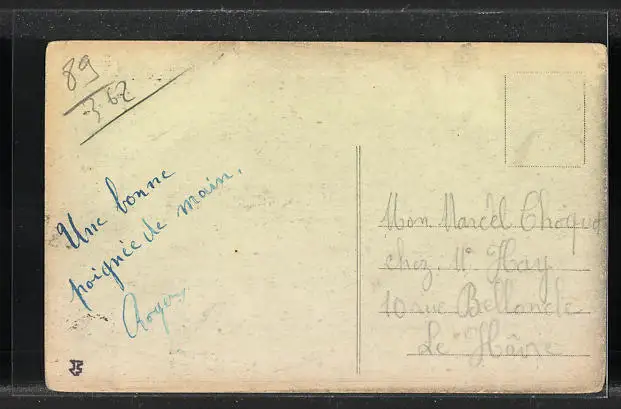 89
3.62
Une bonne
poignée de main.
Roger
Mon Marcel Choquet
chez Mr Hay
10 rue Bellonde
Le Hâvre